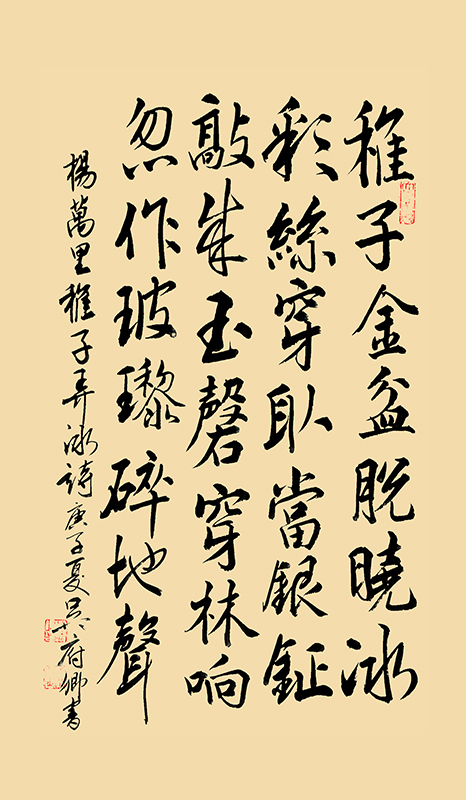 稚子金盆脱曉冰
彩絲穿取當銀鉦
敲成玉磬穿林响
忽作玻瓈碎地聲
楊萬里稚子弄冰詩庚子夏府卿書